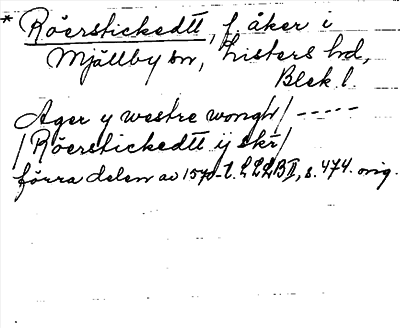 * Röerstickedtt, f. åker i
Mjällby sn, Listers hd,
Blek. l.
Ager y westre wongh / -----
/ Röerstickedtt ij skr /
förra delen av 1570-t. LLLB II, s. 474. orig.